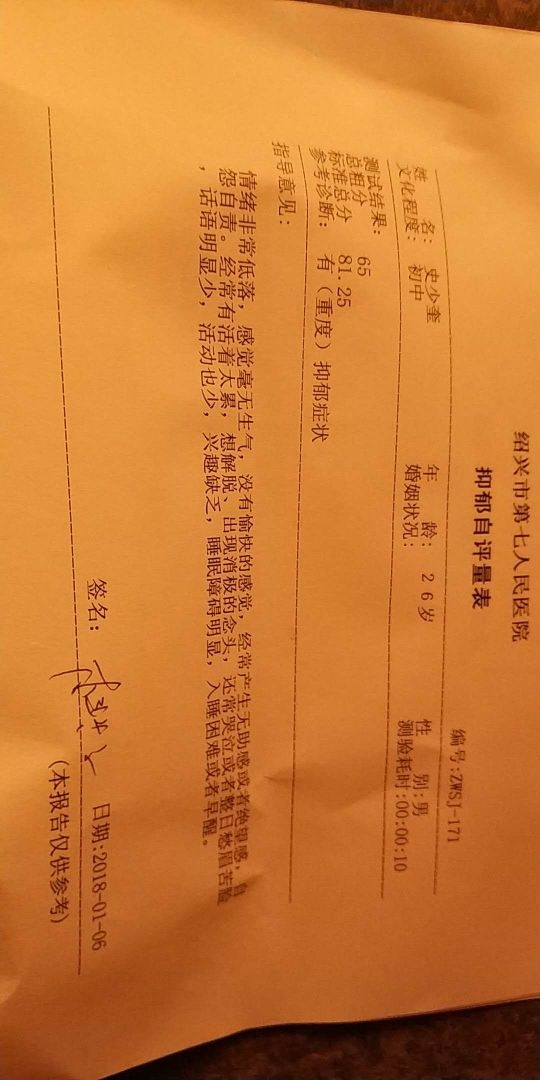 绍兴市第七人民医院
抑郁自评量表
编号:ZWSJ-171
姓 名: 史少奎 年 龄: 26岁 性 别:男
文化程度: 初中 婚姻状况: 测验耗时:00:00:10
测试结果:
总粗分 65
标准总分 81.25
参考诊断: 有(重度)抑郁症状
指导意见:
情绪非常低落,感觉毫无生气,没有愉快的感觉,经常产生无助感或者绝望感,自
怨自责。经常有活着太累,想解脱、出现消极的念头,还常哭泣或者整日愁眉苦脸
,话语明显少,活动也少,兴趣缺乏,睡眠障碍明显,入睡困难或者早醒。
签名: 日期:2018-01-06
(本报告仅供参考)